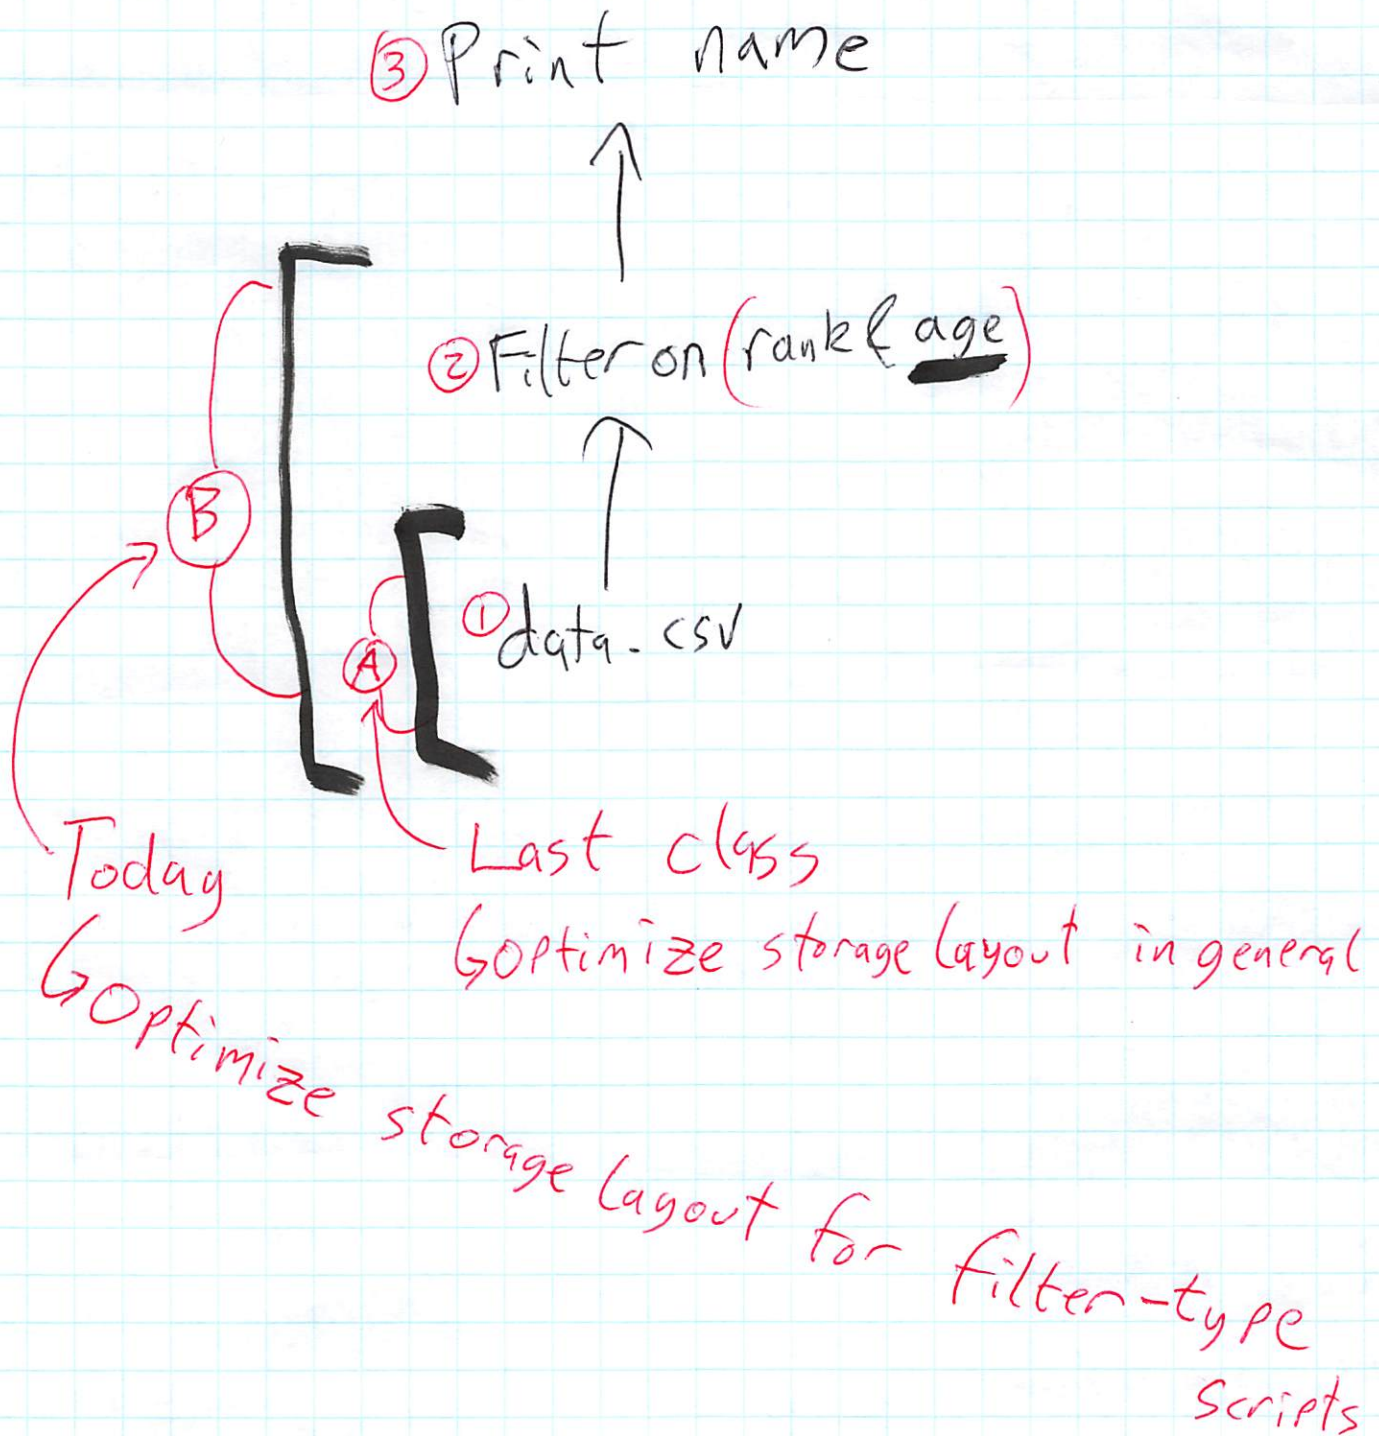 ③ Print name
② Filter on (rank & age)
B
① data.csv
A
Last class
↳ Optimize storage layout in general
Today
↳ Optimize storage layout for filter-type
scripts